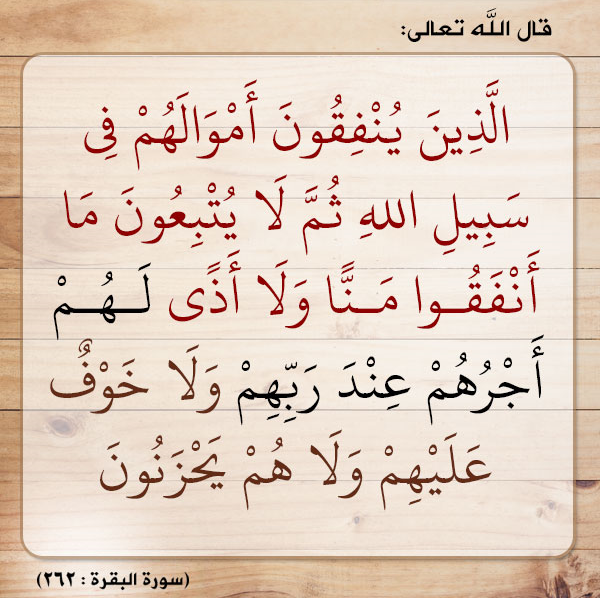 قال الله تعالى:
الَّذِينَ يُنْفِقُونَ أَمْوَالَهُمْ فِى
سَبِيلِ اللهِ ثُمَّ لَا يُتْبِعُونَ مَا
أَنْفَقُــوا مَــنًّا وَلَا أَذًى لَــهُــمْ
أَجْرُهُمْ عِنْدَ رَبِّهِمْ وَلَا خَوْفٌ
عَلَيْهِمْ وَلَا هُمْ يَحْزَنُونَ
(سورة البقرة : ٢٦٢)